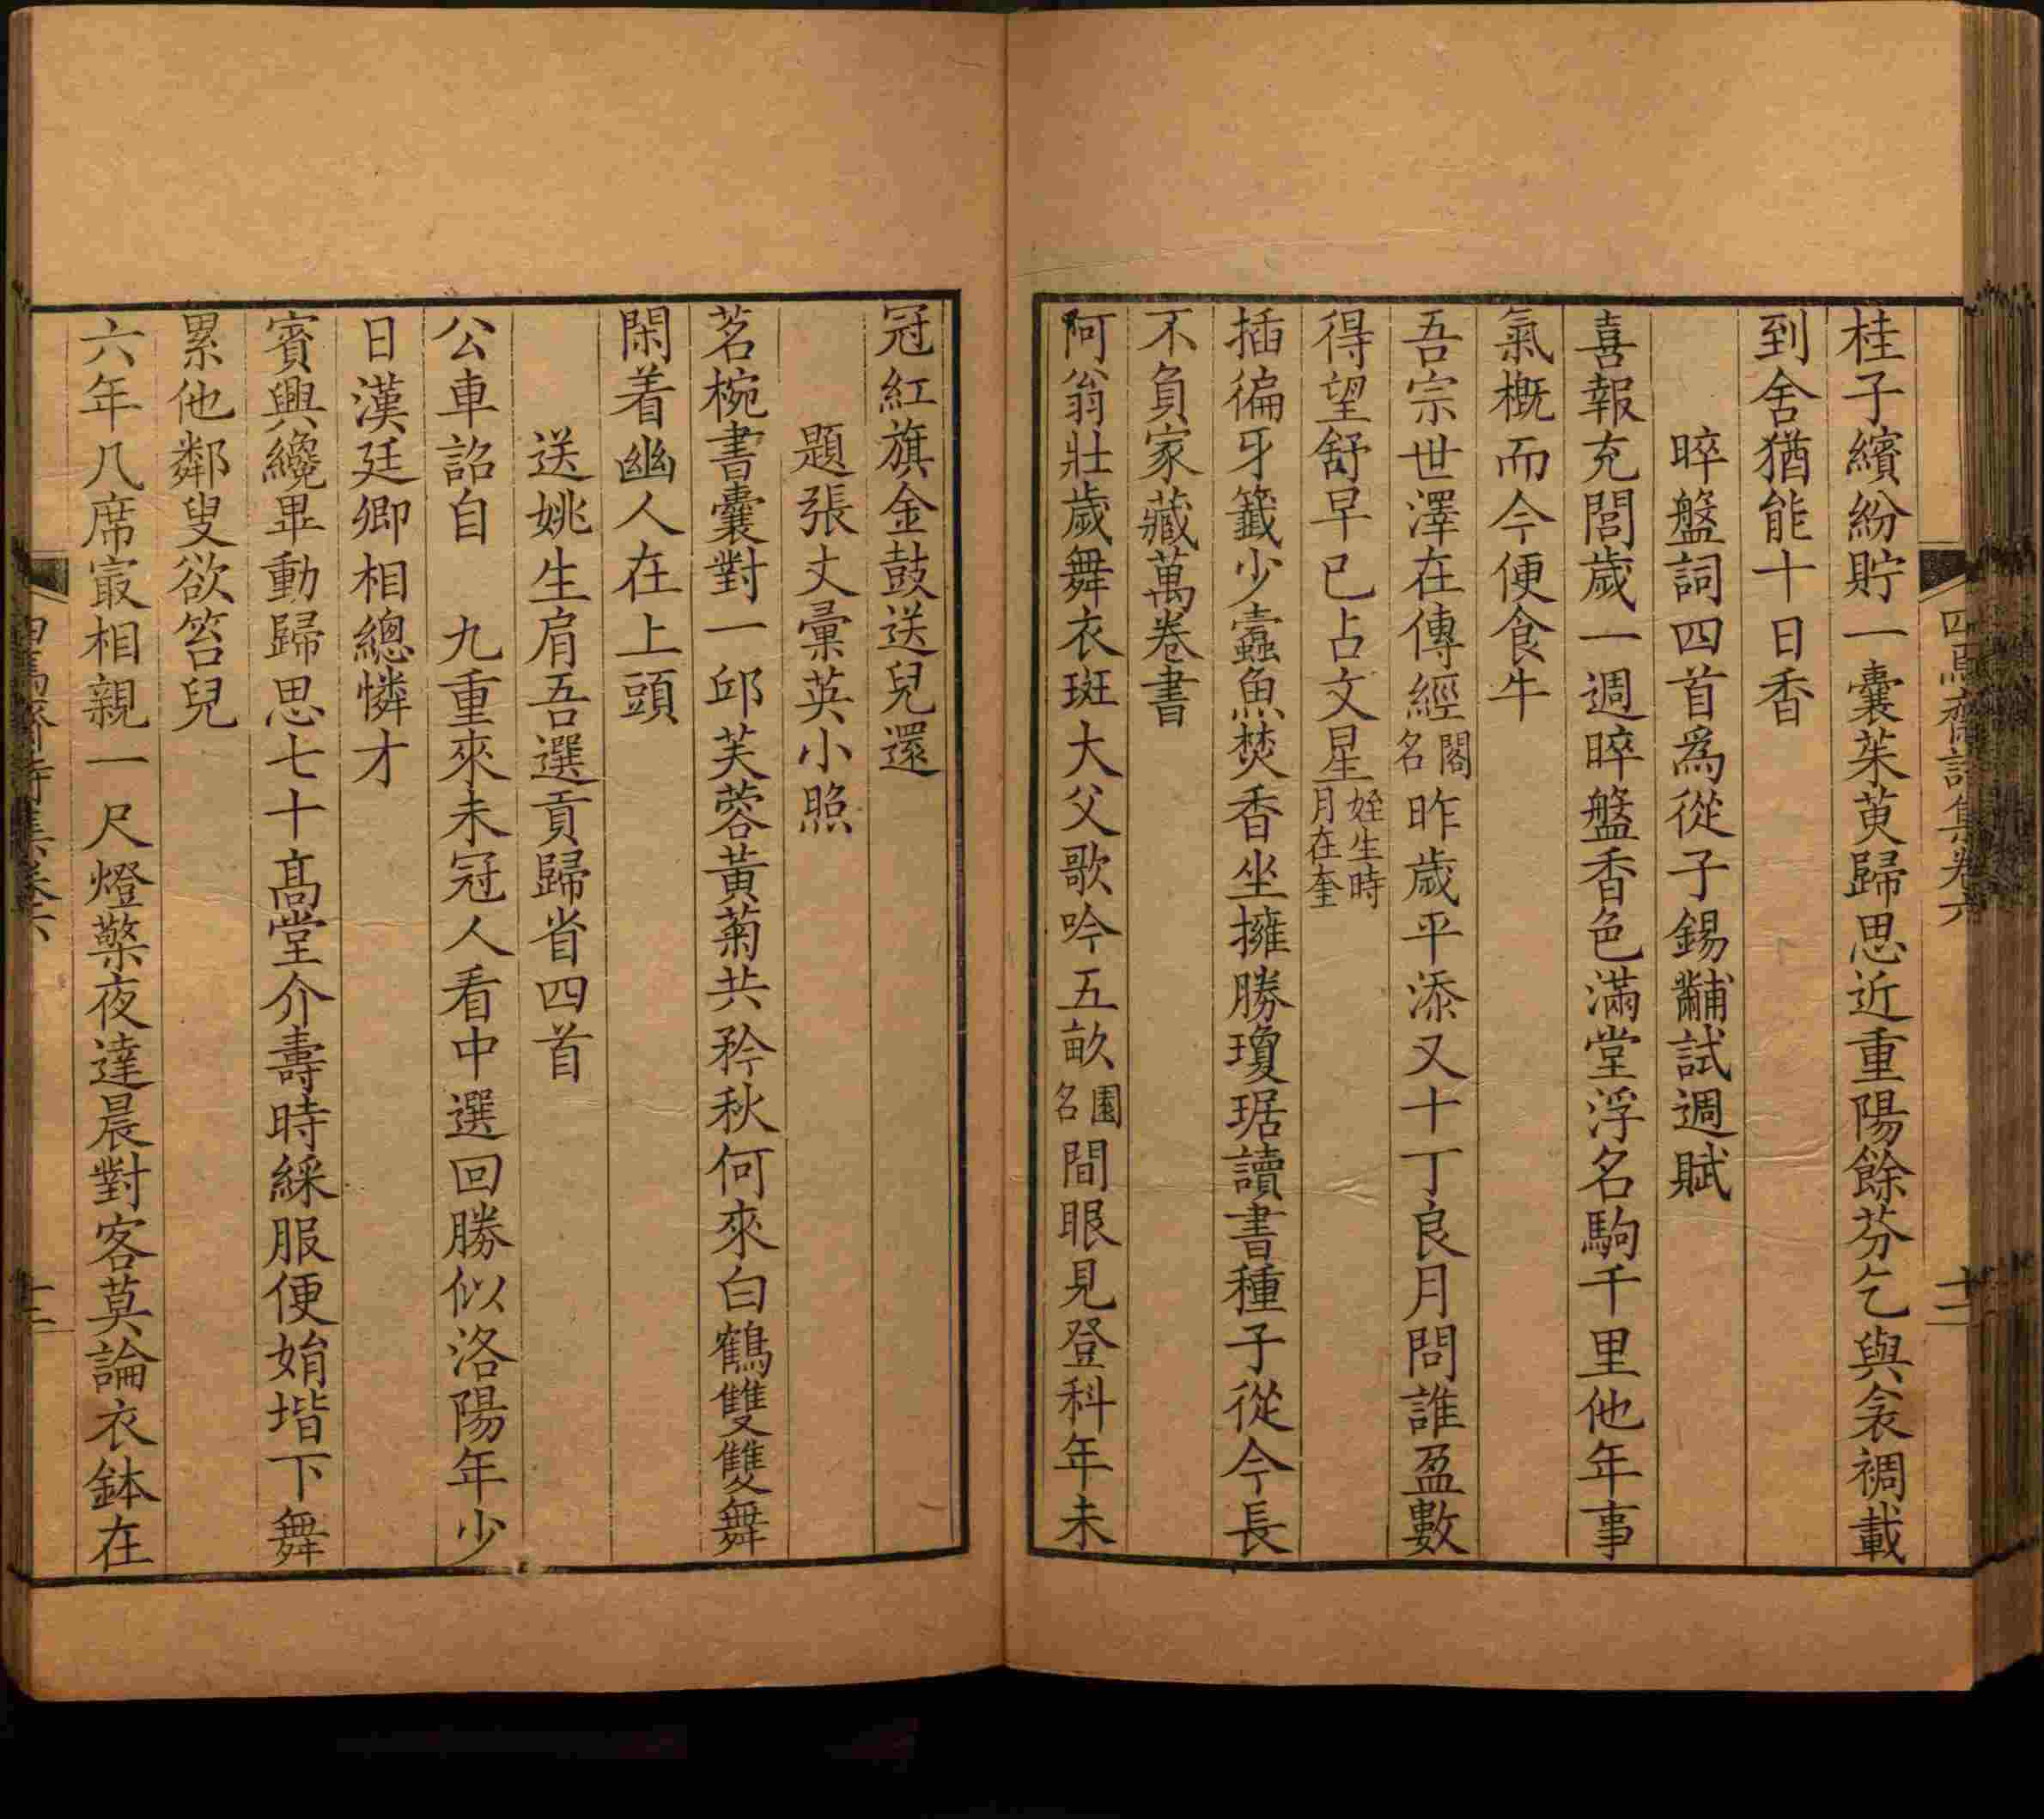 桂子繽紛貯一囊茱萸歸思近重陽餘芬乞與衾裯載
到舍猶能十日香
晬盤詞四首爲從子錫黼試週賦
喜報充閭歲一週晬盤香色滿堂浮名駒千里他年事
氣概而今便食牛
吾宗世澤在傳經閣名昨歲平添又十丁良月問誰盈數
得望舒早已占文星姪生時月在奎
插徧牙籤少蠹魚焚香坐擁勝瓊琚讀書種子從今長
不負家藏萬卷書
阿翁壯歲舞衣斑大父歌吟五畝園名間眼見登科年未
冠紅旗金鼓送兒還
題張丈彙英小照
茗椀書囊對一邱芙蓉黃菊共矜秋何來白鶴雙雙舞
閑着幽人在上頭
送姚生肩吾選貢歸省四首
公車詔自　九重來未冠人看中選回勝似洛陽年少
日漢廷卿相總憐才
賓興纔畢動歸思七十高堂介壽時綵服便娟堦下舞
累他鄰叟欲笞兒
六年几席㝡相親一尺燈檠夜達晨對客莫論衣鉢在
四焉齋詩集卷六
十二